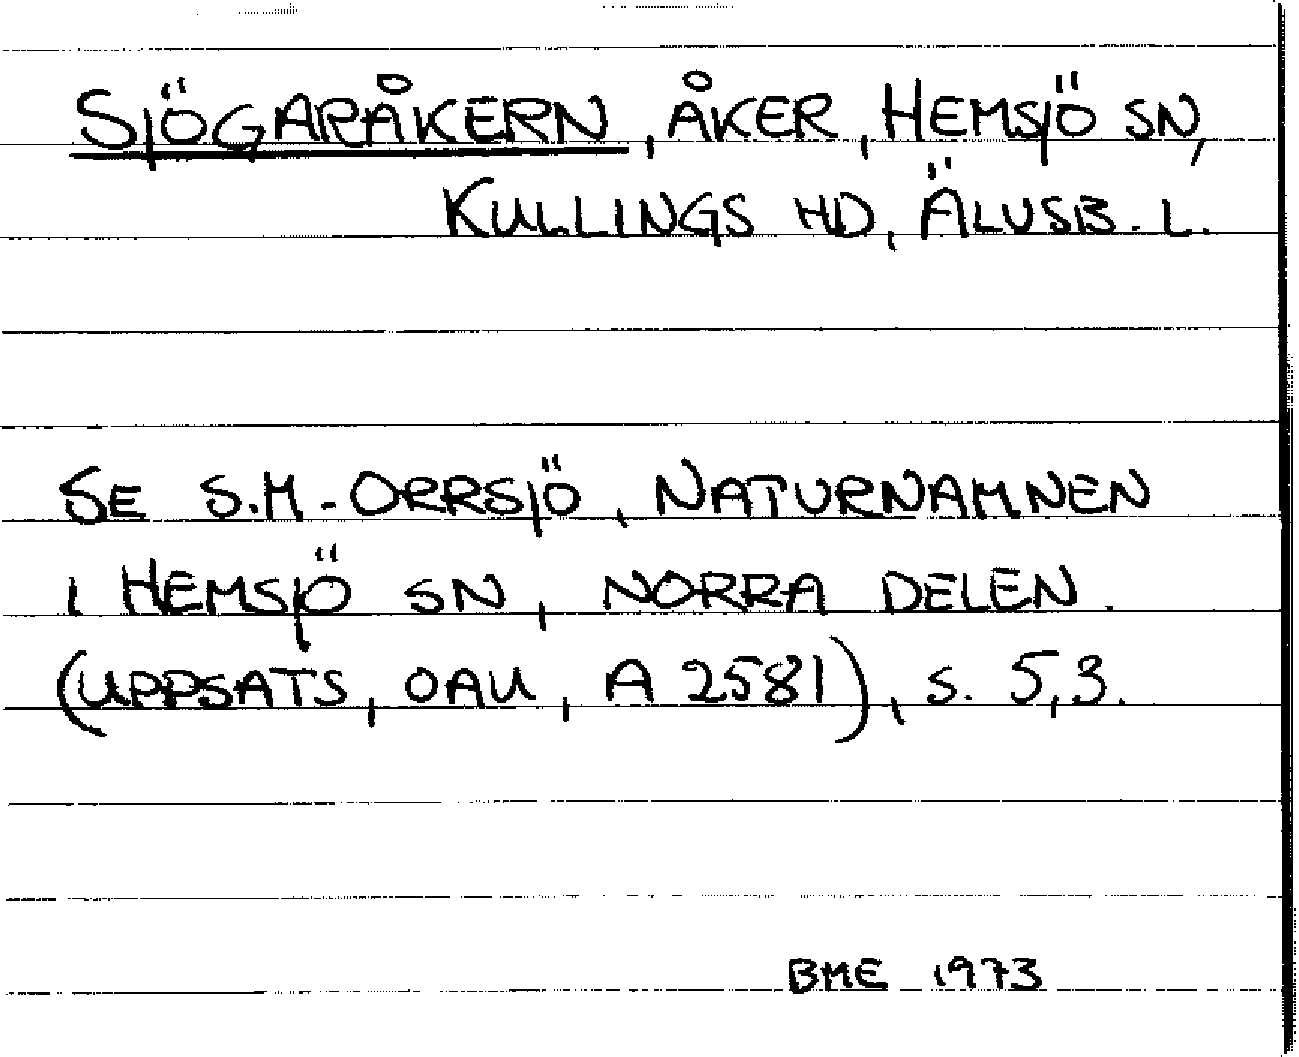 SJÖGARÅKERN, ÅKER, HEMSJÖ SN,
KULLINGS HD, ÄLVSB. L.
SE S.M. ORRSJÖ, NATURNAMNEN
I HEMSJÖ SN, NORRA DELEN.
(UPPSATS, OAU, A 2581), S. 5,3.
BME 1973